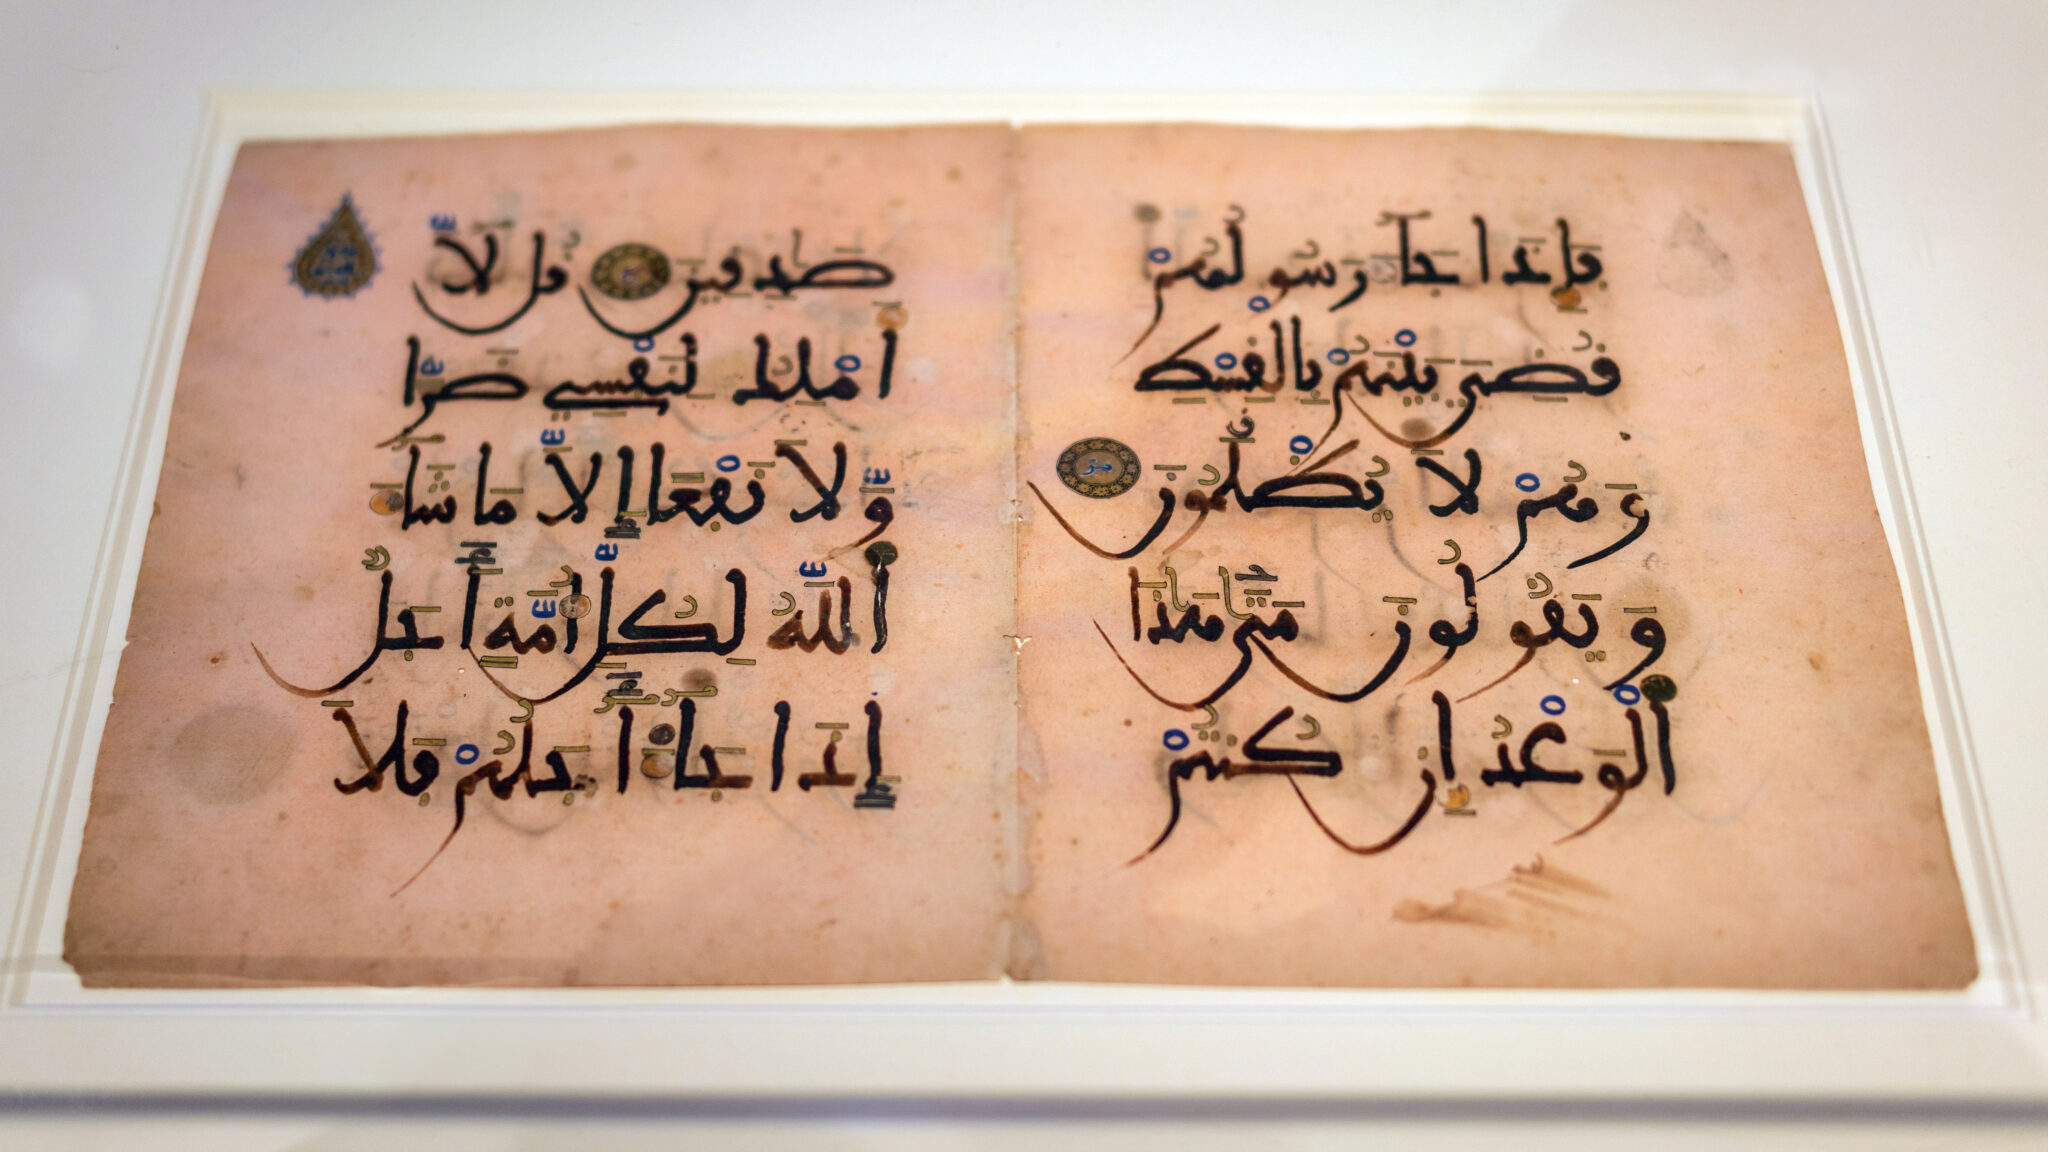 فَإِذَا جَآءَ رَسُولُهُمْ
قُضِيَ بَيْنَهُمْ بِالْقِسْطِ
وَهُمْ لَا يُظْلَمُونَ
وَيَقُولُونَ مَتَىٰ هَٰذَا
اَ۬لْوَعْدُ إِن كُنتُمْ
صَٰدِقِينَ قُل لَّآ
أَمْلِكُ لِنَفْسِي ضَرّاً
وَّلَا نَفْعاً إِلَّا مَا شَآءَ
اَ۬للَّهُ لِكُلِّ أُمَّةٍ أَجَلٌ
إِذَا جَآءَ أَجَلُهُمْ فَلَا